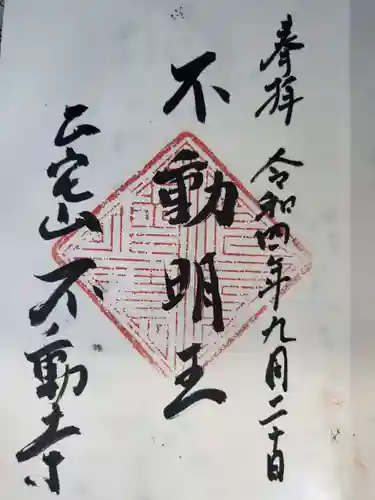 奉拝
令和四年九月二十日
不動明王
正宅山不動寺